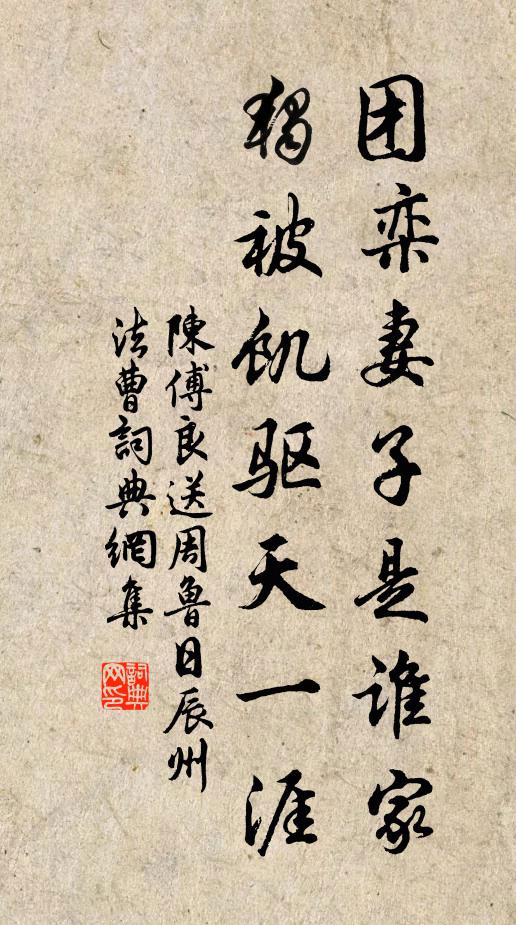 团栾妻子是谁家
独被饥驱天一涯
陳傅良送周鲁日辰州
法曹詞典網集
詞典网印